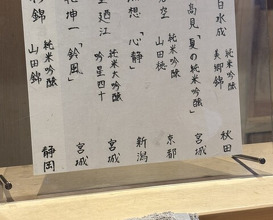 白水成 純米吟醸 美郷錦 秋田
高見「夏の純米吟醸」 宮城
空 純米吟醸 山田穂 京都
想「心静」 新潟
廼江 純米大吟醸 吟星四十 宮城
坤一「鈴風」 宮城
錦 純米吟醸 山田錦 静岡